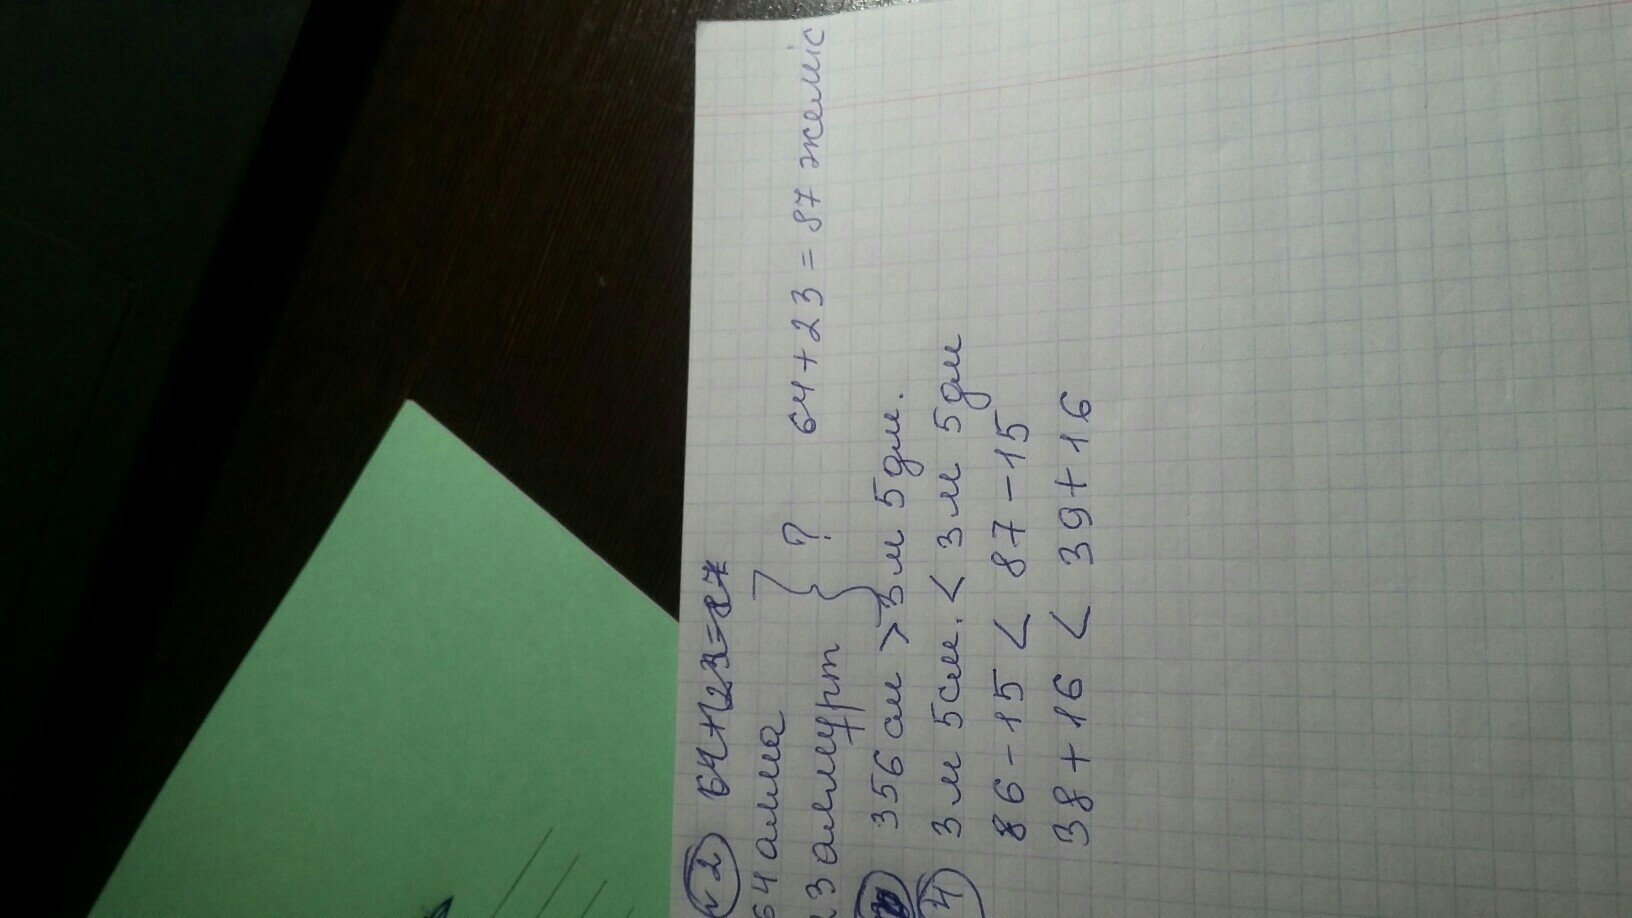 №2 64+23=87
64 алма
23 алмұрт } ? 64+23=87 жеміс
356 см > 3 м 5 дм.
4) 3 м 5 см. < 3 м 5 дм
86-15 < 87-15
38+16 < 39+16